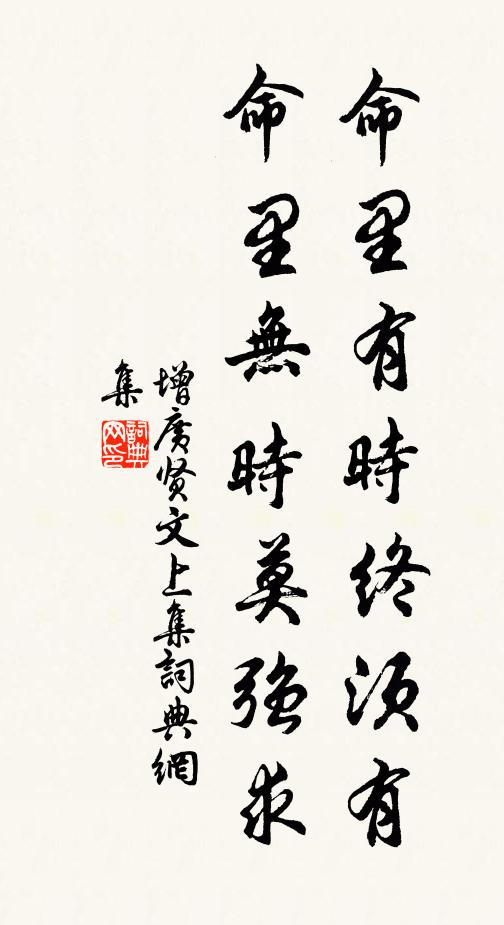 命里有時終須有
命里無時莫強求
增廣贤文上集詞典網
集
詞典网印